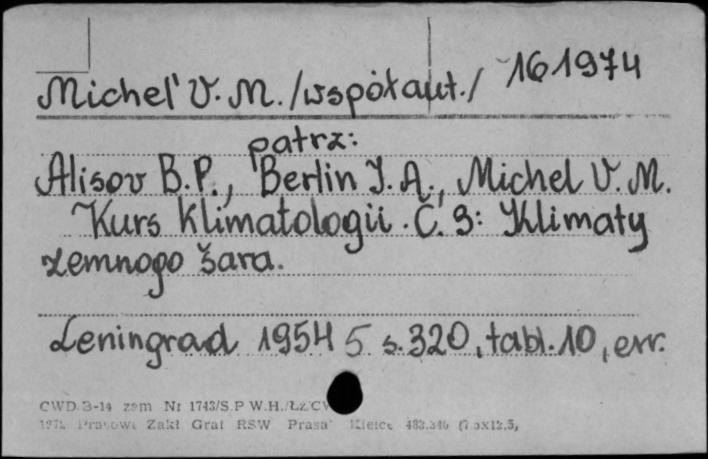 Michel' V. M. /współaut./ 161974
patrz:
Alisov B.P., Berlin I. A., Michel V. M.
Kurs klimatologii. Č. 3: Klimaty
zemnogo šara.
Leningrad 1954 5 s. 320, tabl. 10, err.
CWD B-14 zam Nr 1743/S.P W.H./ŁZ/CW
Zakł Graf RSW Prasa